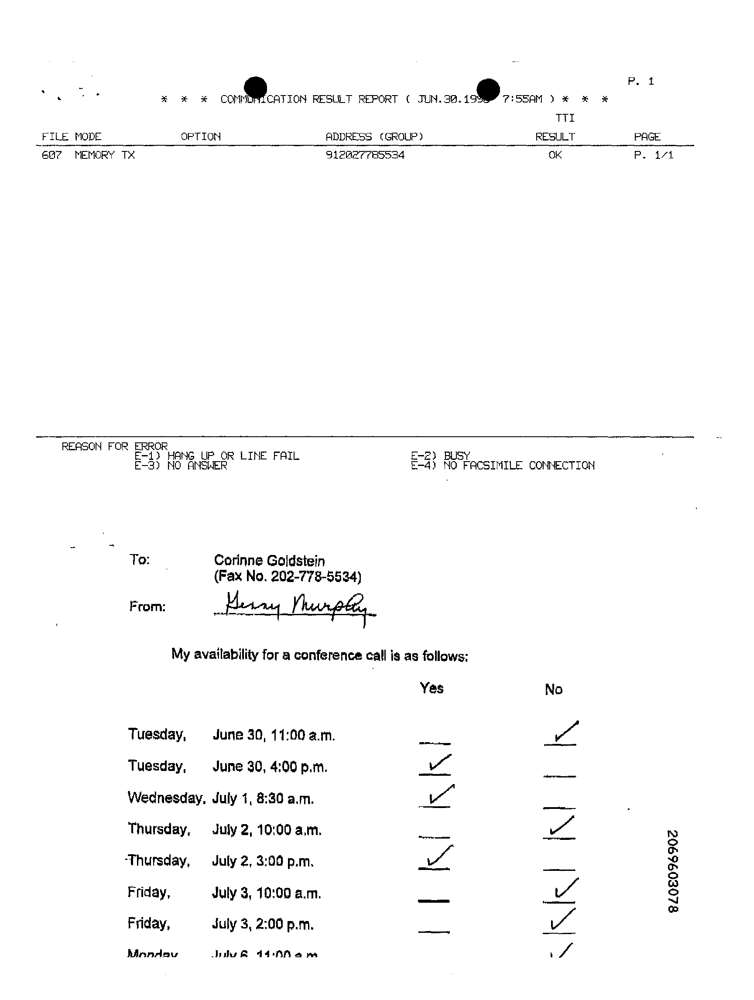 P. 1
* * * COMMUNICATION RESULT REPORT ( JUN.30.199 7:55AM ) * * *
TTI
FILE MODE OPTION ADDRESS (GROUP) RESULT PAGE
607 MEMORY TX 912027785534 OK P. 1/1
REASON FOR ERROR
E-1) HANG UP OR LINE FAIL E-2) BUSY
E-3) NO ANSWER E-4) NO FACSIMILE CONNECTION
To: Corinne Goldstein
(Fax No. 202-778-5534)
From: Gerry Murphy
My availability for a conference call is as follows:
Yes No
Tuesday, June 30, 11:00 a.m. __ ✓
Tuesday, June 30, 4:00 p.m. ✓ __
Wednesday, July 1, 8:30 a.m. ✓ __
Thursday, July 2, 10:00 a.m. __ ✓
Thursday, July 2, 3:00 p.m. ✓ __
Friday, July 3, 10:00 a.m. __ ✓
Friday, July 3, 2:00 p.m. __ ✓
Monday July 6, 11:00 a.m. ✓
2069603078